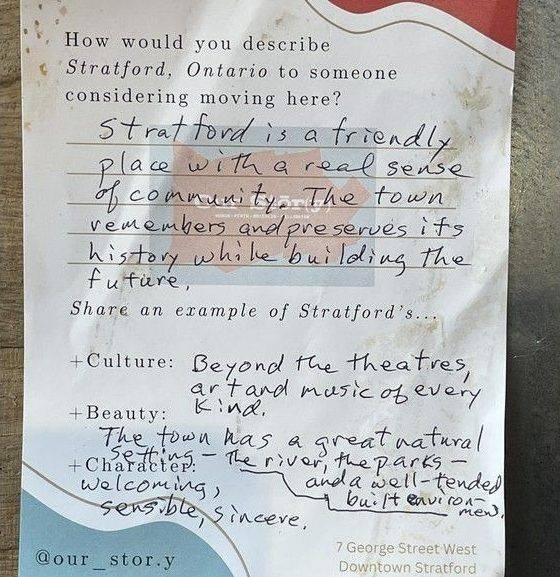 How would you describe
Stratford, Ontario to someone
considering moving here?
Stratford is a friendly
place with a real sense
of community. The town
remembers and preserves its
history while building the
future.
Share an example of Stratford's...
+Culture: Beyond the theatres,
art and music of every
kind.
+Beauty:
The town has a great natural
setting – the river, the parks –
and a well-tended
built environ-
ment.
+Character:
welcoming,
sensible, sincere.
@our_stor.y
7 George Street West
Downtown Stratford